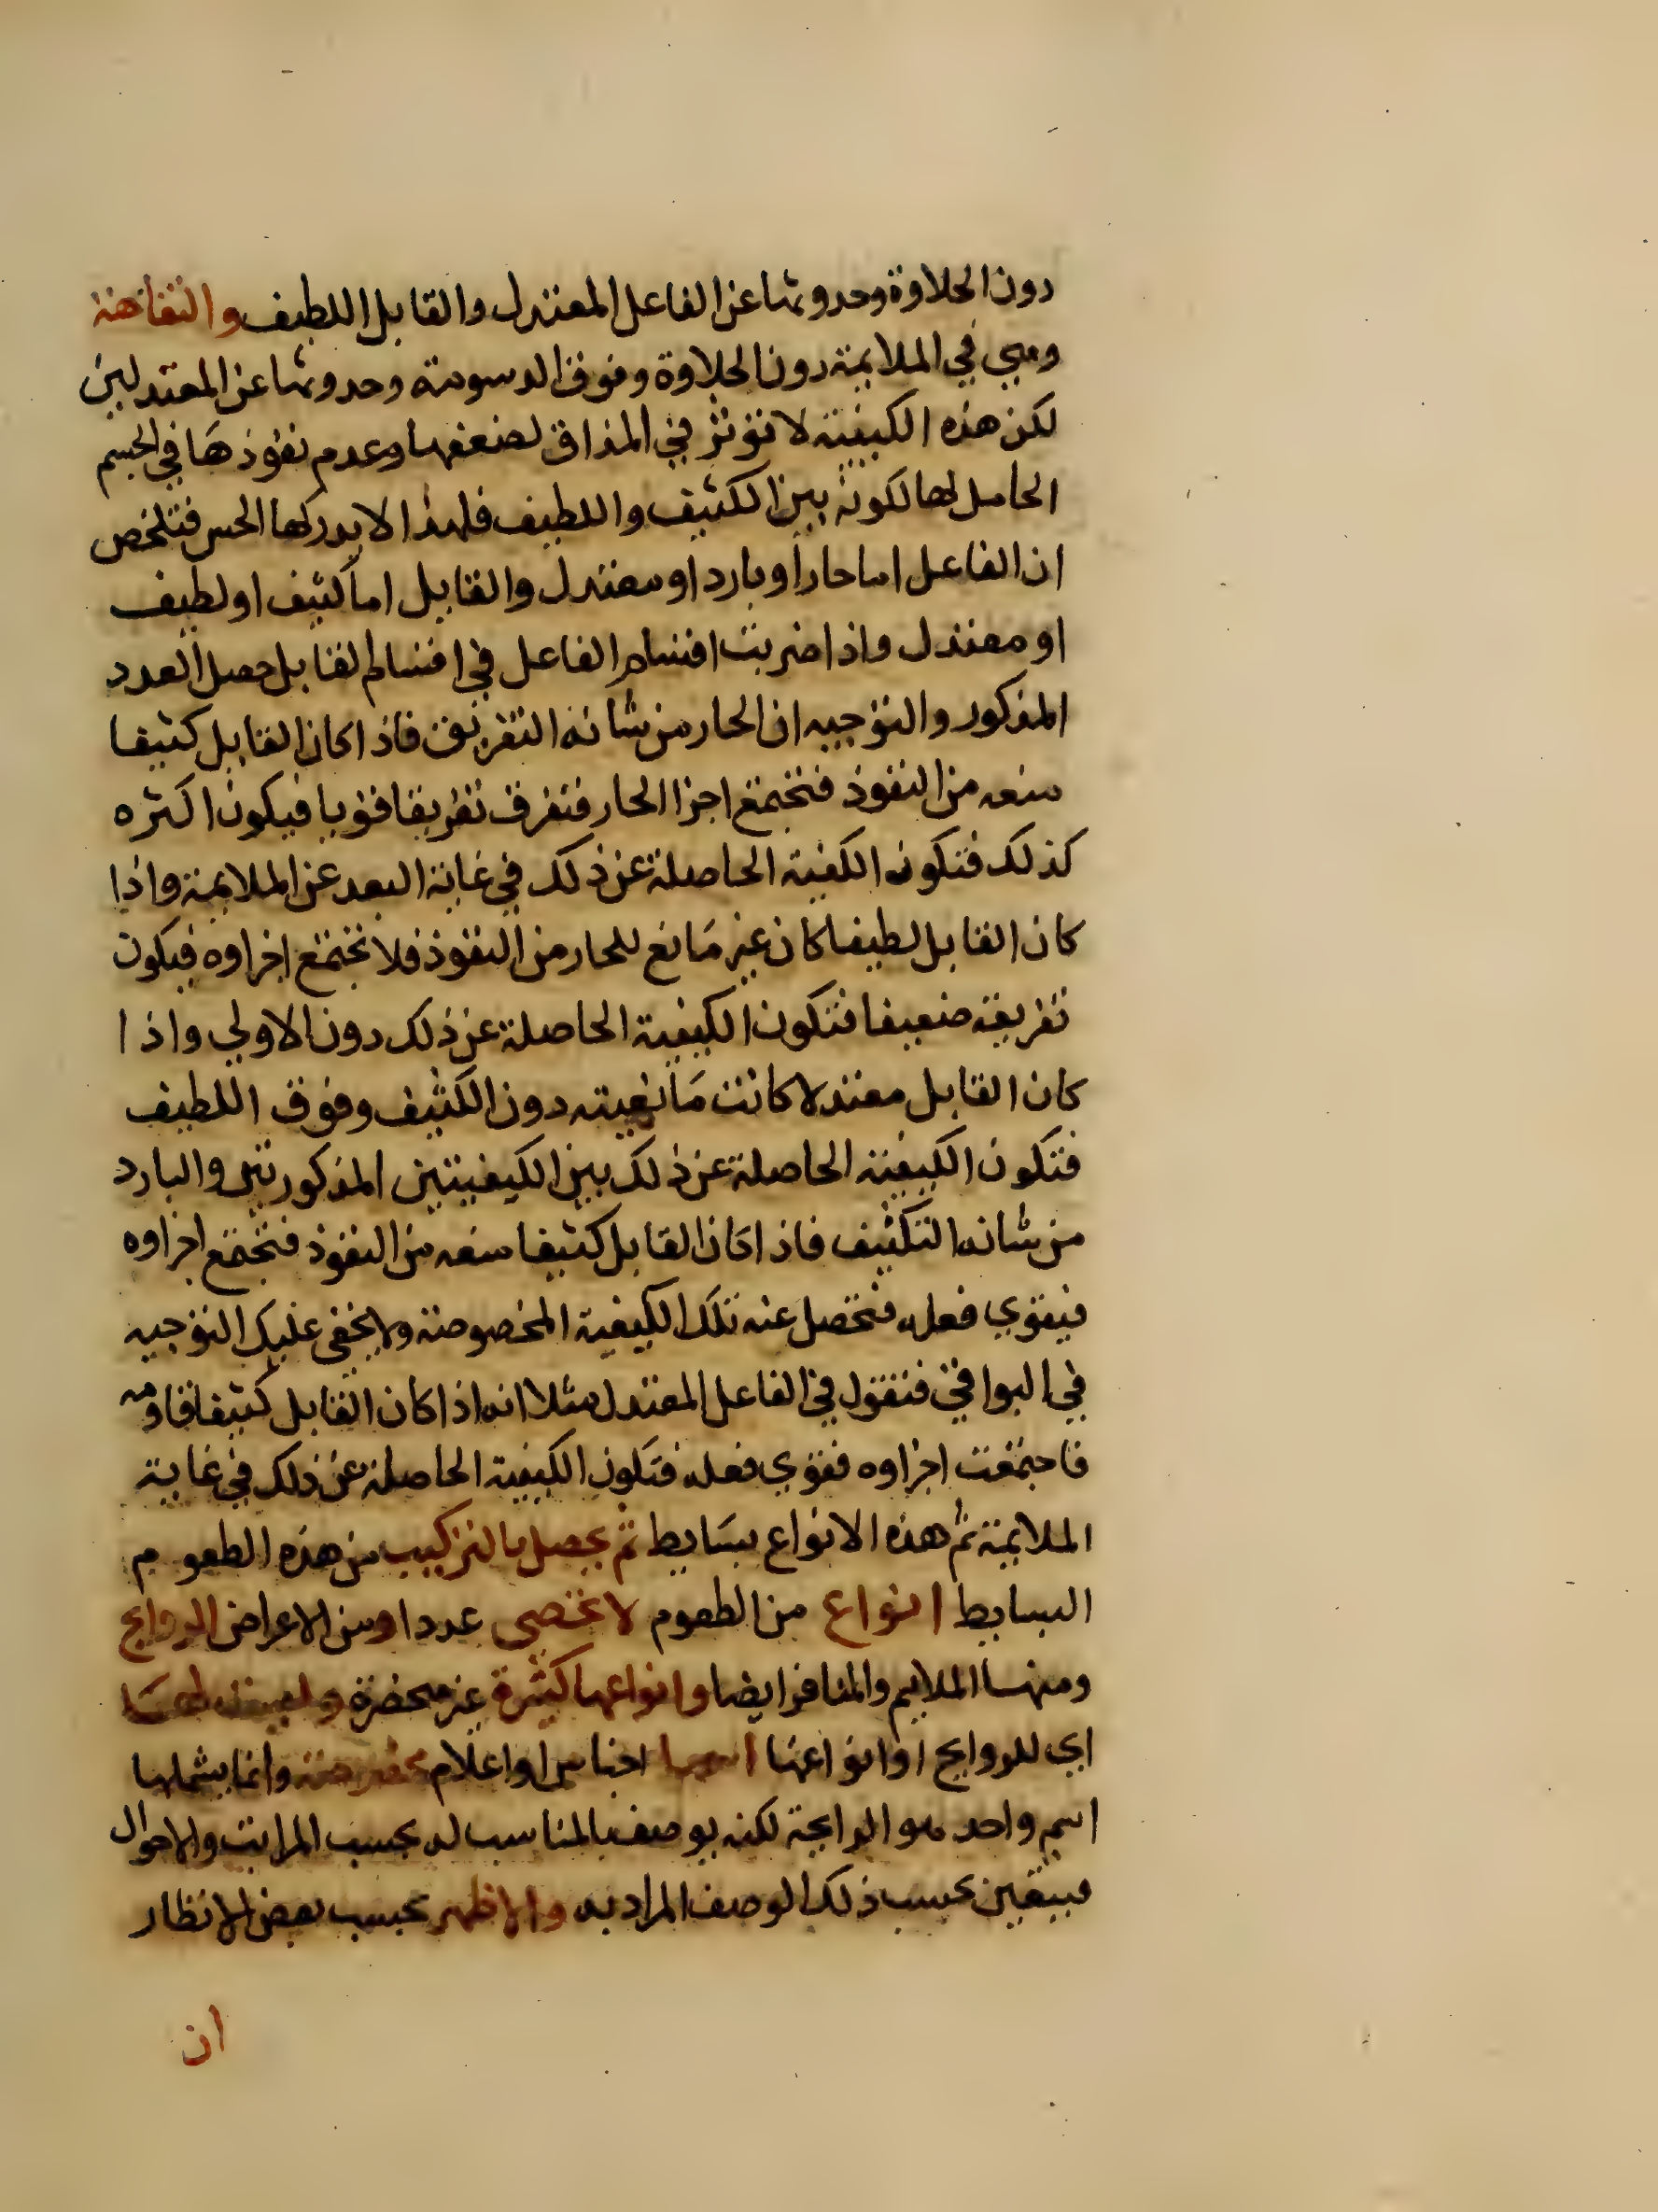 دون الحلاوة وحدوثها عن الفاعل المعتدل والقابل اللطيف والتفاهة
وهي في الملايمة دون الحلاوة وفوق الدسومة وحدوثها عن المعتدلين
لكن هذه الكيفية لا تؤثر في المذاق لضعفها وعدم نفوذها في الجسم
الحامل لها لكونه بين الكثيف واللطيف فلهذا لا يدركها الحس فتلخص
ان الفاعل اما حارا وبارد او معتدل والقابل اما كثيف او لطيف
او معتدل واذا ضربت اقسام الفاعل في اقسام القابل حصل العدد
المذكور والتوجيه ان الحار من شانه التفريق فاذا كان القابل كثيفا
منعه من النفوذ فتجتمع اجزا الحار فتفرق تفريقا قويا فيكون اكثره
كذلك فتكون الكفية الحاصلة عن ذلك في غاية البعد عن الملايمة واذا
كان القابل لطيفا كان غير مانع للحار من النفوذ فلا تجتمع اجزاوه فيكون
تفريقه ضعيفا فتكون الكيفية الحاصلة عن ذلك دون الاولي واذا
كان القابل معتدلا كانت مانعيته دون الكثيف وفوق اللطيف
فتكون الكيفية الحاصلة عن ذلك بين الكيفيتين المذكورتين والبارد
من شانه التكثيف فاذا كان القابل كثيفا منعه من النفوذ فتجتمع اجزاوه
فيقوي فعله فتحصل عنه تلك الكيفية المخصوصة ولا يخفى عليك التوجيه
في البواقي فنقول في الفاعل المعتدل مثلا انه اذا كان القابل كثيفا قاومه
فاجتمعت اجزاوه فقوي فعله فتكون الكيفية الحاصلة عن ذلك في غاية
الملايمة ثم هذه الانواع بسايط ثم يحصل بالتركيب من هذه الطعوم
البسايط انواع من الطعوم لا تحصى عددا ومن الاعراض الروايح
ومنها الملايم والمنافر ايضا وانواعها كثيرة غير منحصرة لها
اي للروايح او انواعها اجناس او اعلام وانما يشملها
اسم واحد هو الرايحة لكنه يوصف بالمناسب له بحسب المراتب والاحوال
فيتعين بحسب ذلك الوصف المراد به والاظهر بحسب بعض الانظار
ان